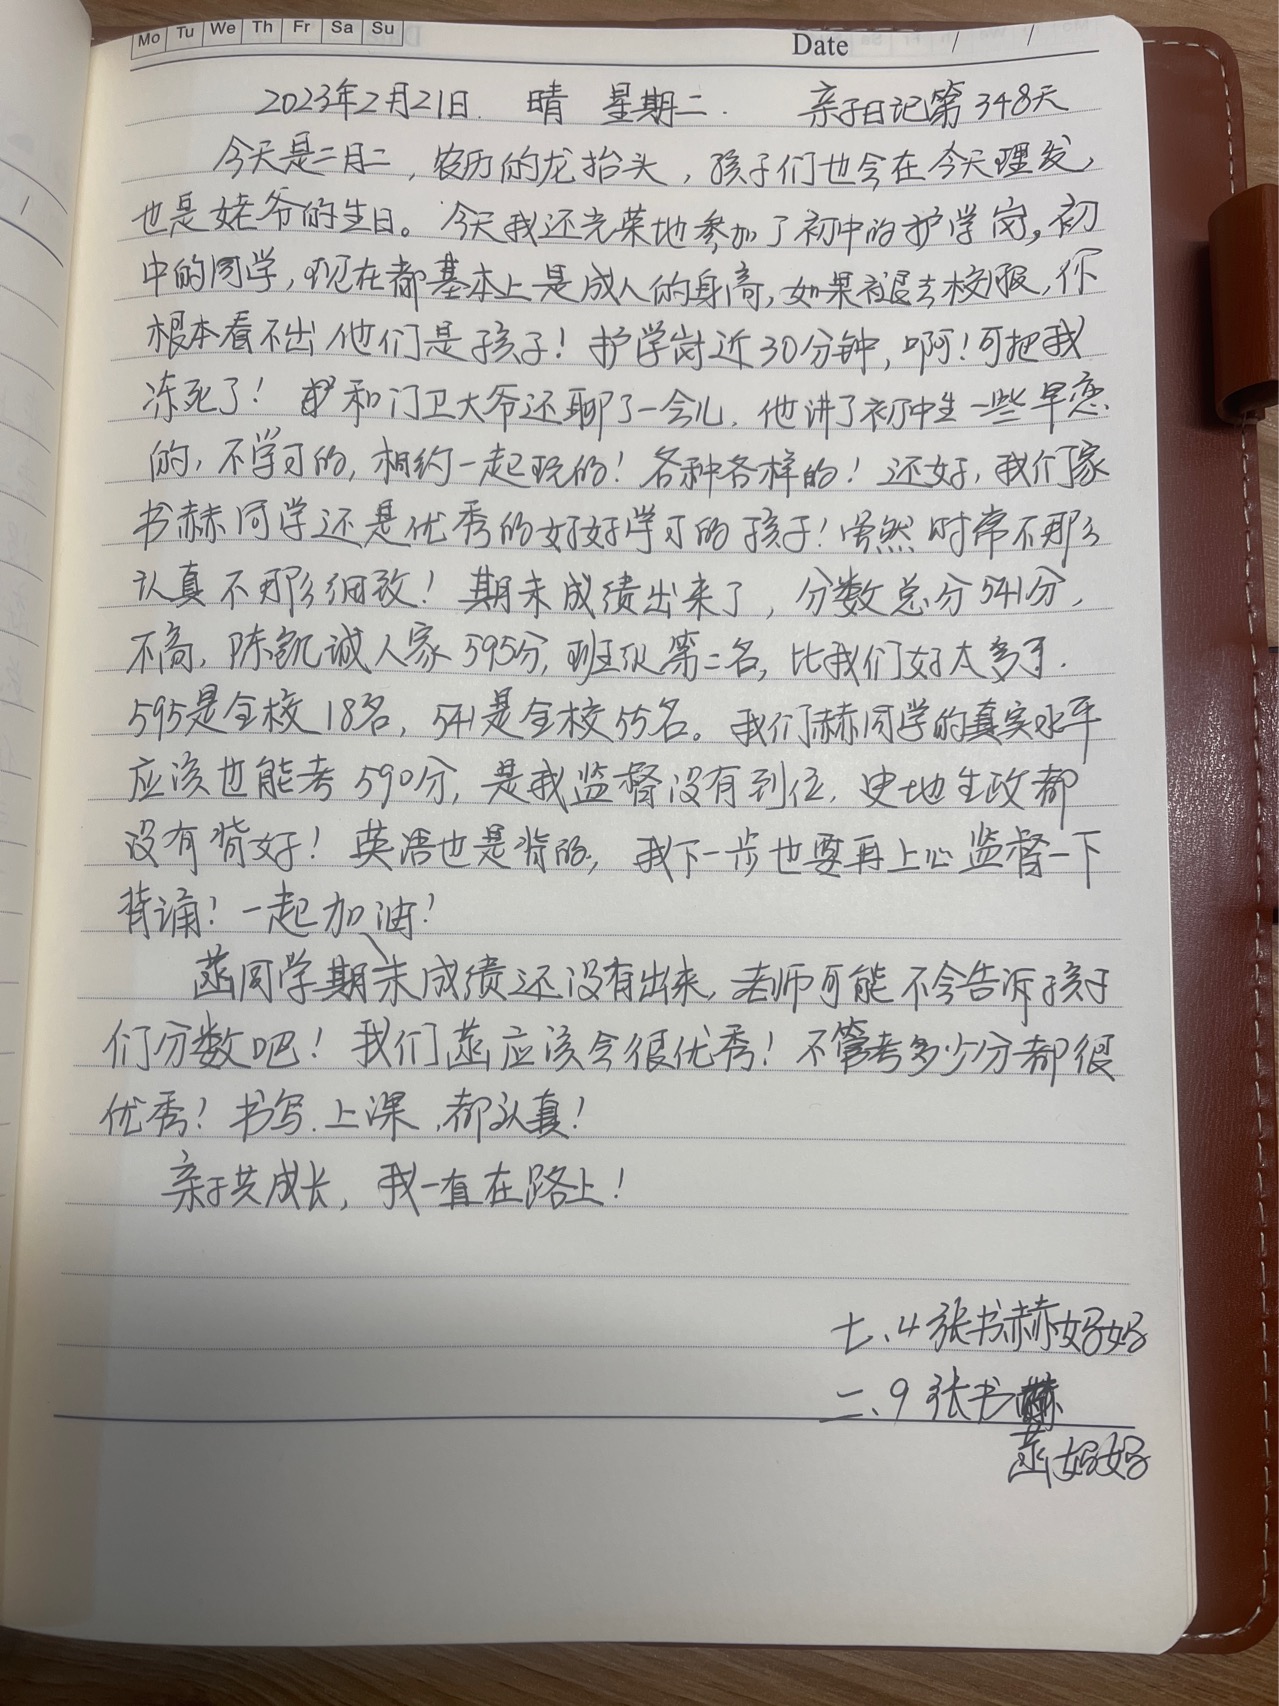 Mo Tu We Th Fr Sa Su
Date / /
2023年2月21日. 晴 星期二. 亲子日记第348天
今天是二月二，农历的龙抬头，孩子们也会在今天理发，
也是姥爷的生日。今天我还光荣地参加了初中的护学岗，初
中的同学，现在都基本上是成人的身高，如果褪去校服，你
根本看不出他们是孩子！护学岗近30分钟，啊！可把我
冻死了！我和门卫大爷还聊了一会儿，他讲了初中生一些早恋
的，不学习的，相约一起玩的！各种各样的！还好，我们家
书赫同学还是优秀的好好学习的孩子！虽然时常不那么
认真不那么细致！期末成绩出来了，分数总分541分，
不高，陈凯诚人家595分，班级第二名，比我们好太多了.
595是全校18名，541是全校55名。我们赫同学的真实水平
应该也能考590分，是我监督没有到位，史地生政都
没有背好！英语也是背的，我下一步也要再上心监督一下
背诵！一起加油！
菡同学期末成绩还没有出来，老师可能不会告诉孩子
们分数吧！我们菡应该会很优秀！不管考多少分都很
优秀！书写、上课、都认真！
亲子共成长，我一直在路上！
七、4张书赫妈妈
二、9张书
菡妈妈